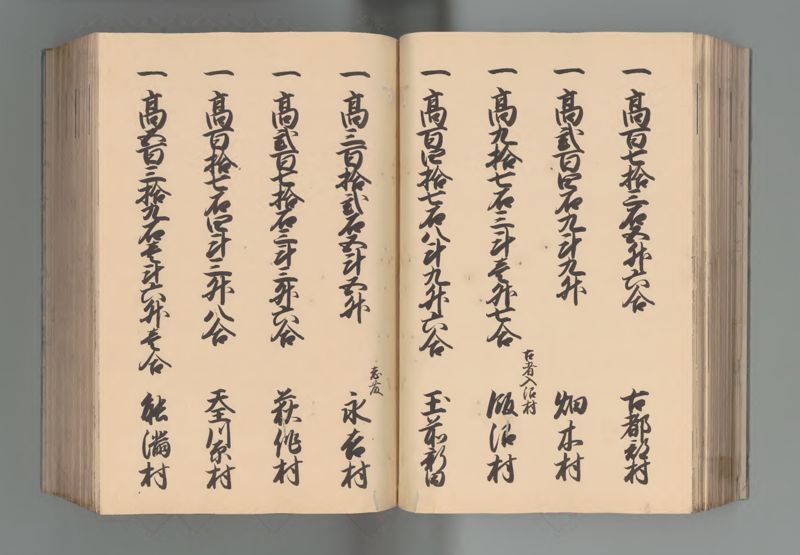 一 高百七拾三石五升六合 古都辺村
一 高弐百四石九斗九升 畑木村
一 高九拾七石三斗壱升七合 古者入沼村 飯沼村
一 高百四拾七石八斗九升六合 玉前新田
一 高三百拾弐石五斗五升 永吉村
一 高弐百七拾石三斗三升六合 萩作村
一 高百拾七石四斗三升八合 天王川原村
一 高五百三拾九石壱斗六升壱合 能満村